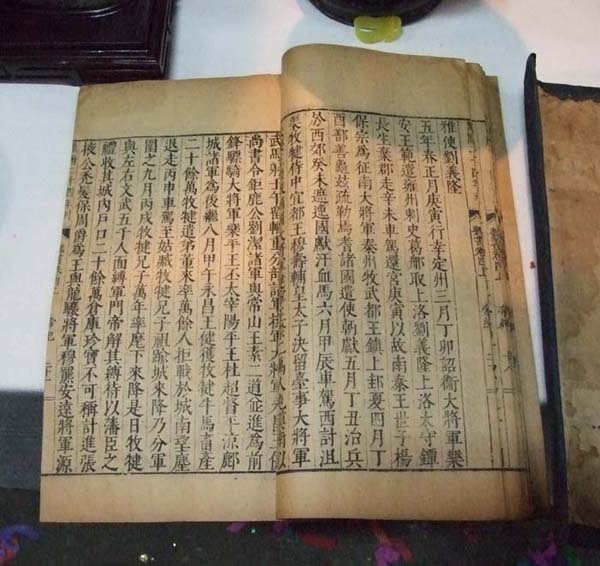 雅使劉義隆
五年春正月庚寅行幸定州三月丁卯詔衞大將軍樂
安王範遣雍州刺史葛那取上洛劉義隆上洛太守鐔
長生棄郡走辛未車駕還宮庚寅以故南秦王世子楊
保宗爲征南大將軍秦州牧武都王鎮上邽夏四月丁
酉鄯善龜茲疏勒焉耆諸國遣使朝獻五月丁丑治兵
於西郊癸未遮逸國獻汗血馬六月甲辰車駕西討沮
渠牧犍侍中宜都王穆壽輔皇太子決留臺事大將軍
午留輜重分部諸軍撫軍大將軍永昌王健
尚書令鉅鹿公劉潔諸軍與常山王素二道並進爲前
鋒驃騎大將軍樂平王丕太宰陽平王杜超督平涼鄜
城諸軍爲後繼八月甲午永昌王健獲牧犍牛馬畜産
二十餘萬牧犍遣弟董來率萬餘人拒戰於城南望塵
退走丙申車駕至姑臧牧犍兄子祖踰城來降乃分軍
圍之九月丙戌牧犍兄子萬年率麾下來降是日牧犍
與左右文武五千人面縛軍門帝解其縛待以藩臣之
禮收其城內戸口二十餘萬倉庫珍寶不可稱計進張
掖公禿髮保周爵爲王與龍驤將軍穆羆安遠將軍源